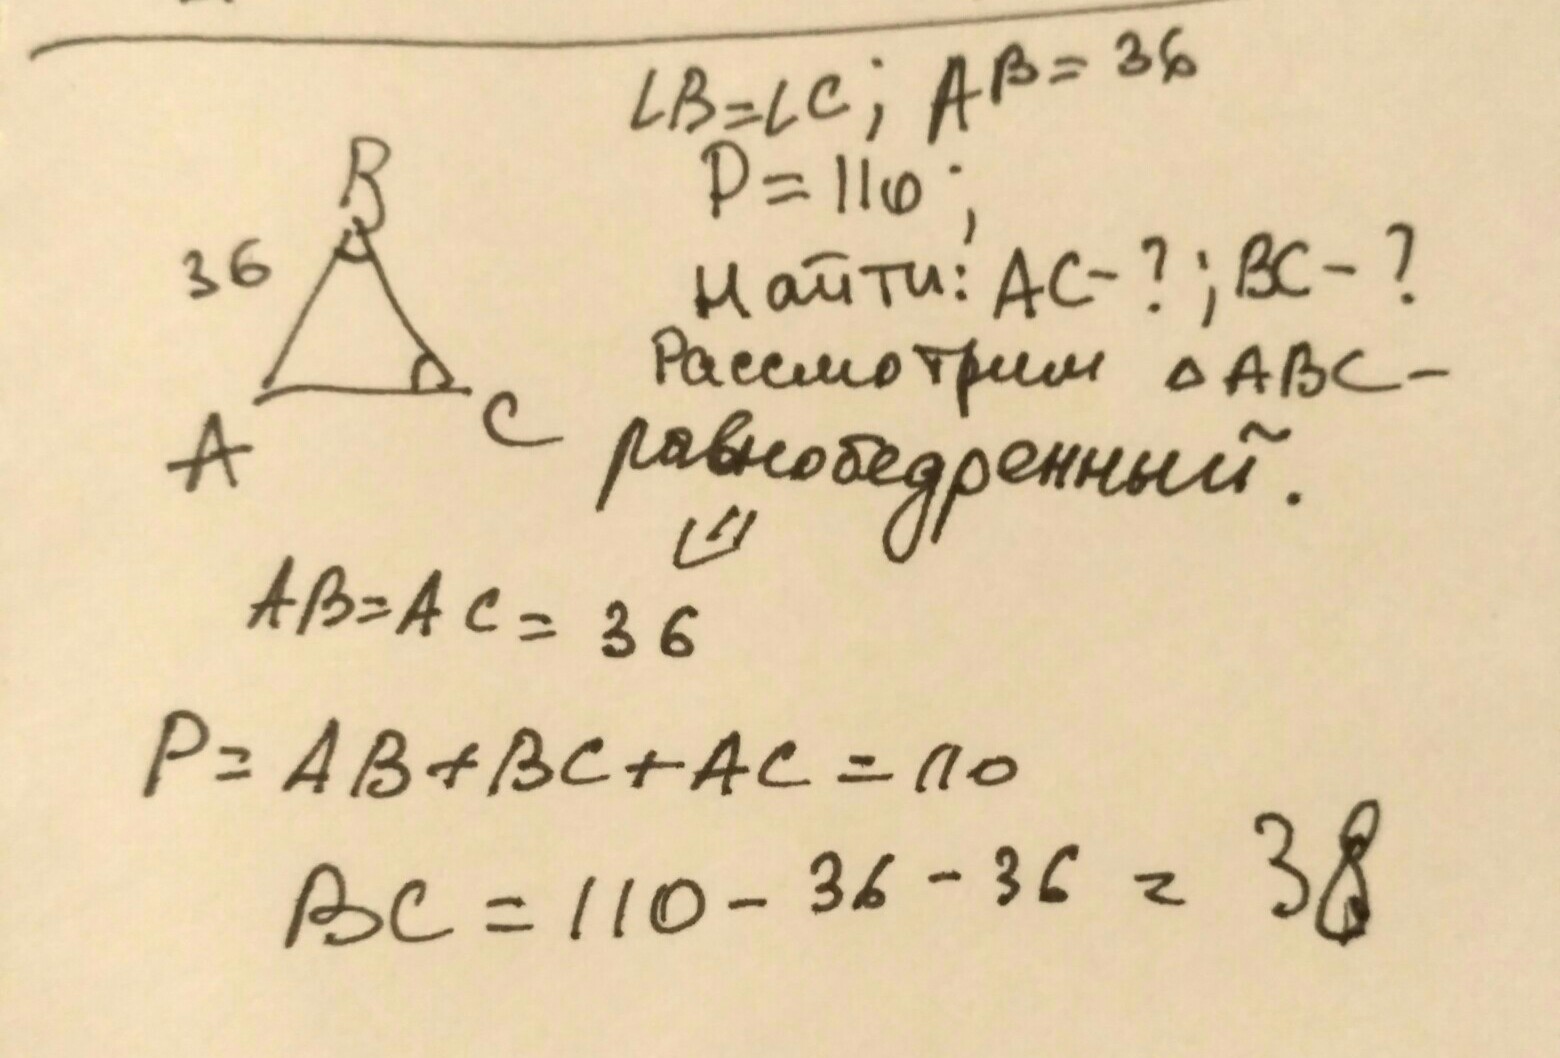 ∠B=∠C; AB=36
P=110;
Найти: AC-?; BC-?
Рассмотрим △ABC-
равнобедренный.
⇓
B
36
A
C
AB=AC=36
P=AB+BC+AC=110
BC=110-36-36=38